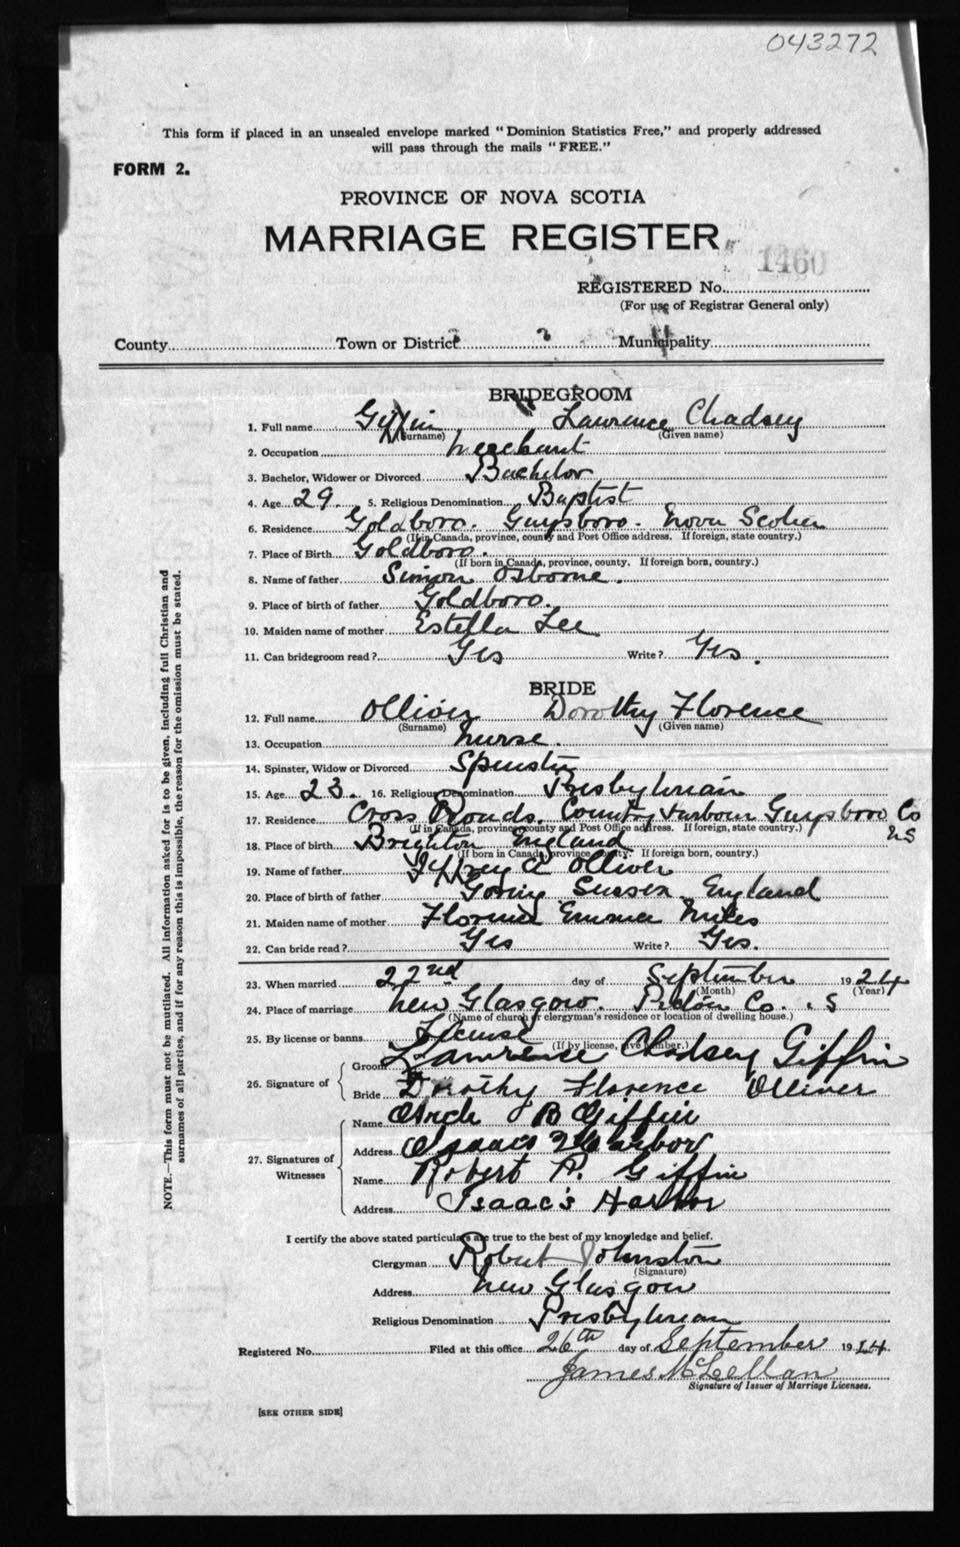 043272
This form if placed in an unsealed envelope marked "Dominion Statistics Free," and properly addressed
will pass through the mails "FREE."
FORM 2.
PROVINCE OF NOVA SCOTIA
MARRIAGE REGISTER
1460
REGISTERED No.
(For use of Registrar General only)
County Town or District Municipality
BRIDEGROOM
1. Full name Giffin Lawrence Chadsey
(Surname) (Given name)
2. Occupation Merchant
3. Bachelor, Widower or Divorced Bachelor
4. Age 29. 5. Religious Denomination Baptist
6. Residence Goldboro. Guysboro. Nova Scotia
(If in Canada, province, county and Post Office address. If foreign, state country.)
7. Place of Birth Goldboro.
(If born in Canada, province, county. If foreign born, country.)
8. Name of father Simon Osborne.
9. Place of birth of father Goldboro.
10. Maiden name of mother Estella Lee
11. Can bridegroom read? Yes Write? Yes.
BRIDE
12. Full name Olliver Dorothy Florence
(Surname) (Given name)
13. Occupation Nurse
14. Spinster, Widow or Divorced Spinster
15. Age 23. 16. Religious Denomination Presbyterian
17. Residence Cross Roads. Country Harbour Guysboro Co
NS
(If in Canada, province, county and Post Office address. If foreign, state country.)
18. Place of birth Brighton England
(If born in Canada, province, county. If foreign born, country.)
19. Name of father Jeffrey A Olliver
20. Place of birth of father Goring Sussex England
21. Maiden name of mother Florence Emma Miles
22. Can bride read? Yes Write? Yes.
23. When married 22nd day of September 1924
(Month) (Year)
24. Place of marriage New Glasgow. Pictou Co. . S
(Name of church or clergyman's residence or location of dwelling house.)
25. By license or banns License
(If by license, give number.)
26. Signature of Groom Lawrence Chadsey Giffin
Bride Dorothy Florence Olliver
27. Signatures of Witnesses
Name Arch B Giffin
Address Isaac's Harbor
Name Robert P. Giffin
Address Isaac's Harbor
I certify the above stated particulars are true to the best of my knowledge and belief.
Clergyman Robert Johnston
(Signature)
Address New Glasgow
Religious Denomination Presbyterian
Registered No. Filed at this office 26th day of September 1924.
James McLellan
Signature of Issuer of Marriage Licenses.
[SEE OTHER SIDE]
NOTE.—This form must not be mutilated. All information asked for is to be given, including full Christian and
surnames of all parties, and if for any reason this is impossible, the reason for the omission must be stated.